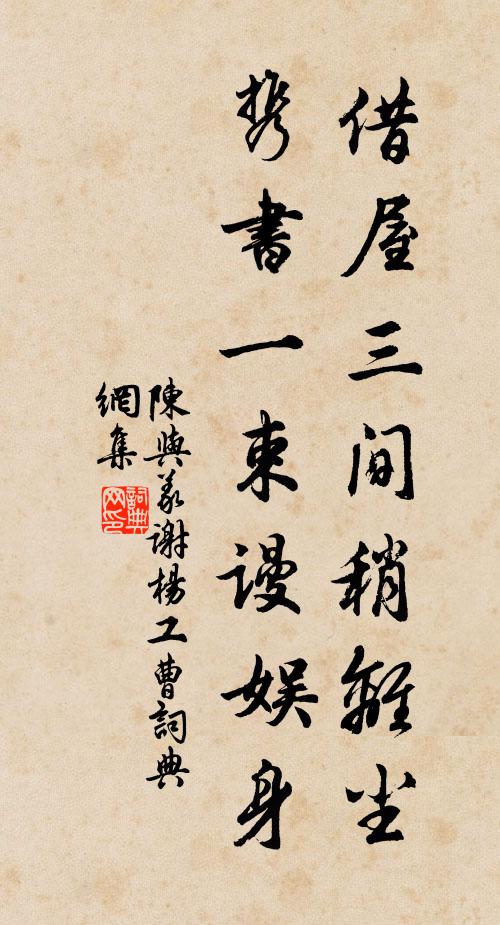 借屋三间稍離尘
携書一束谩娱身
陳與义謝楊工曹詞典
網集
詞典网印